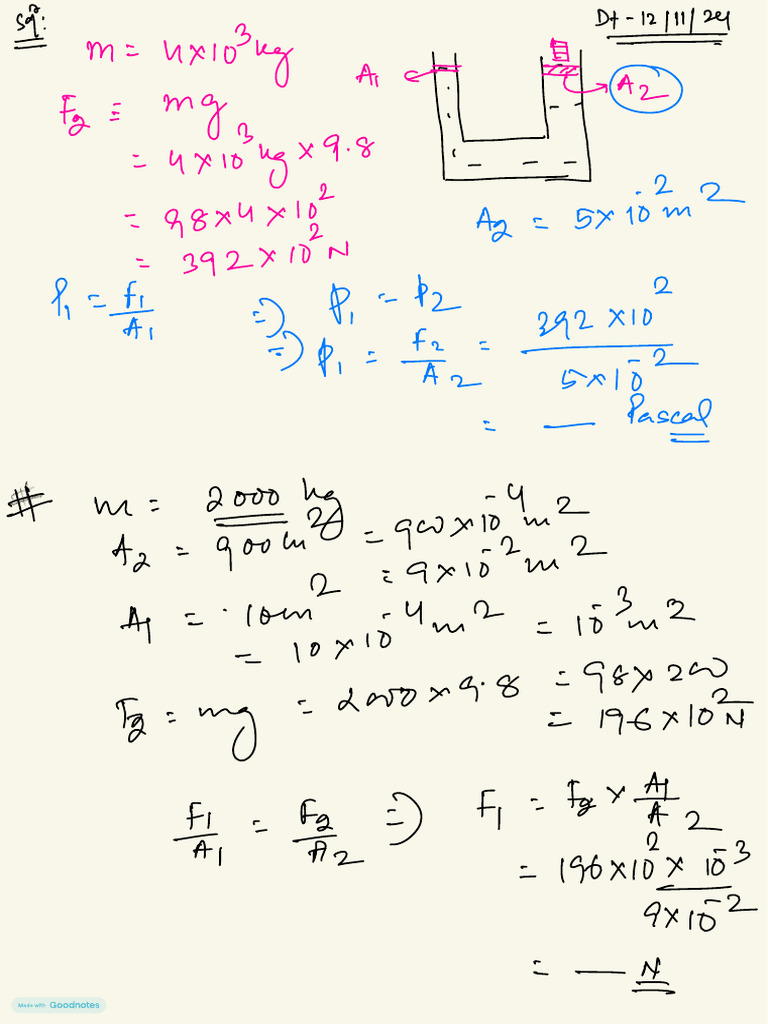 Solⁿ:
Dt - 12/11/24
m = 4×10³ kg
A₁
A₂
F₂ = mg
= 4×10³ kg × 9.8
= 98×4×10²
= 392×10² N
A₂ = 5×10⁻² m²
P₁ = F₁/A₁ ⇒ P₁ = P₂
⇒ P₁ = F₂/A₂ = 392×10² / 5×10⁻²
= — Pascal
# m = 2000 kg
A₂ = 900cm² = 900×10⁻⁴ m²
= 9×10⁻² m²
A₁ = 10cm²
= 10×10⁻⁴ m² = 10⁻³ m²
F₂ = mg = 2000×9.8 = 98×200
= 196×10² N
F₁/A₁ = F₂/A₂ ⇒ F₁ = F₂ × A₁/A₂
= 196×10² × 10⁻³ / 9×10⁻²
= — N
Made with Goodnotes